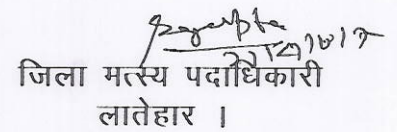 जिला मत्स्य पदाधिकारी
लातेहार ।